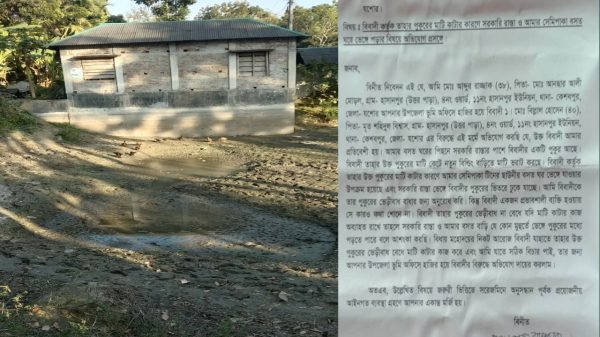 যশোর।
বিষয় ঃ বিবাদী কর্তৃক তাহার পুকুরের মাটি কাটার কারণে সরকারি রাস্তা ও আমার সেমিপাকা বসত
ঘরে ভেঙ্গে পড়ার বিষয়ে অভিযোগ প্রসঙ্গে
জনাব,
বিনীত নিবেদন এই যে, আমি মোঃ আব্দুর রাজ্জাক (৩৮), পিতা- মোঃ আনছার আলী
মোড়ল, গ্রাম- হাসানপুর (উত্তর পাড়া), ৪নং ওয়ার্ড, ১১নং হাসানপুর ইউনিয়ন, থানা- কেশবপুর,
জেলা- যশোর, আপনার উপজেলা ভূমি অফিসে হাজির হয়ে বিবাদী ১। মোঃ বিল্লাল হোসেন (৪০),
পিতা- মৃত শহিদুল বিশ্বাস, গ্রাম- হাসানপুর (উত্তর পাড়া), ৪নং ওয়ার্ড, ১১নং হাসানপুর ইউনিয়ন,
থানা- কেশবপুর, জেলা- যশোর এর বিরুদ্ধে এই মর্মে অভিযোগ করছি যে, উক্ত বিবাদী আমার
প্রতিবেশী হয়। আমার বসত ঘরের পিছনে সরকারি রাস্তার পাশে বিবাদীর একটি পুকুর আছে।
বিবাদী তাহার উক্ত পুকুরের মাটি কেটে নতুন বিল্ডিং বাড়িতে মাটি ভরাট করছে। বিবাদী কর্তৃক
তাহার পুকুরের মাটি কাটার কারণে আমার সেমিপাকা টিনের ছাউনীর বসত ঘর ভেঙ্গে যাওয়ার
উপক্রম হয়েছে এবং সরকারি রাস্তা ভেঙ্গে বিবাদীর পুকুরের ভিতরে ঢুকে যাচ্ছে। আমি বিবাদীকে
তার পুকুরের ভেড়ীবাধ দেওয়ার জন্য অনুরোধ করি। কিন্তু বিবাদী একজন প্রভাবশালী ব্যক্তি হওয়ায়
সে কারও কথা শোনে না। বিবাদী তাহার পুকুরের ভেড়ীবাধ না বেধে যদি মাটি কাটার কাজ
অব্যাহত রাখে তাহলে সরকারি রাস্তা ও আমার বসত বাড়ি যে কোন মুহূর্তে ভেঙ্গে পুকুরের মধ্যে
পড়তে পারে বলে আশংকা করছি। বিধায় মহোদয়ের নিকট আরোজ বিবাদী যাহাতে তাহার উক্ত
পুকুরের ভেড়ীবাধ বেধে মাটি কাটার কাজ করে এবং আমি যাতে সঠিক বিচার পাই, তার জন্য
আপনার উপজেলা ভূমি অফিসে হাজির হয়ে বিবাদীর বিরুদ্ধে অভিযোগ দায়ের করলাম।
অতএব, উল্লেখিত বিষয়ে জরুরী ভিত্তিতে সরেজমিনে অনুসন্ধান পূর্বক প্রয়োজনীয়
আইনগত ব্যবস্থা গ্রহণে আপনার একান্ত মর্জি হয়।
বিনীত